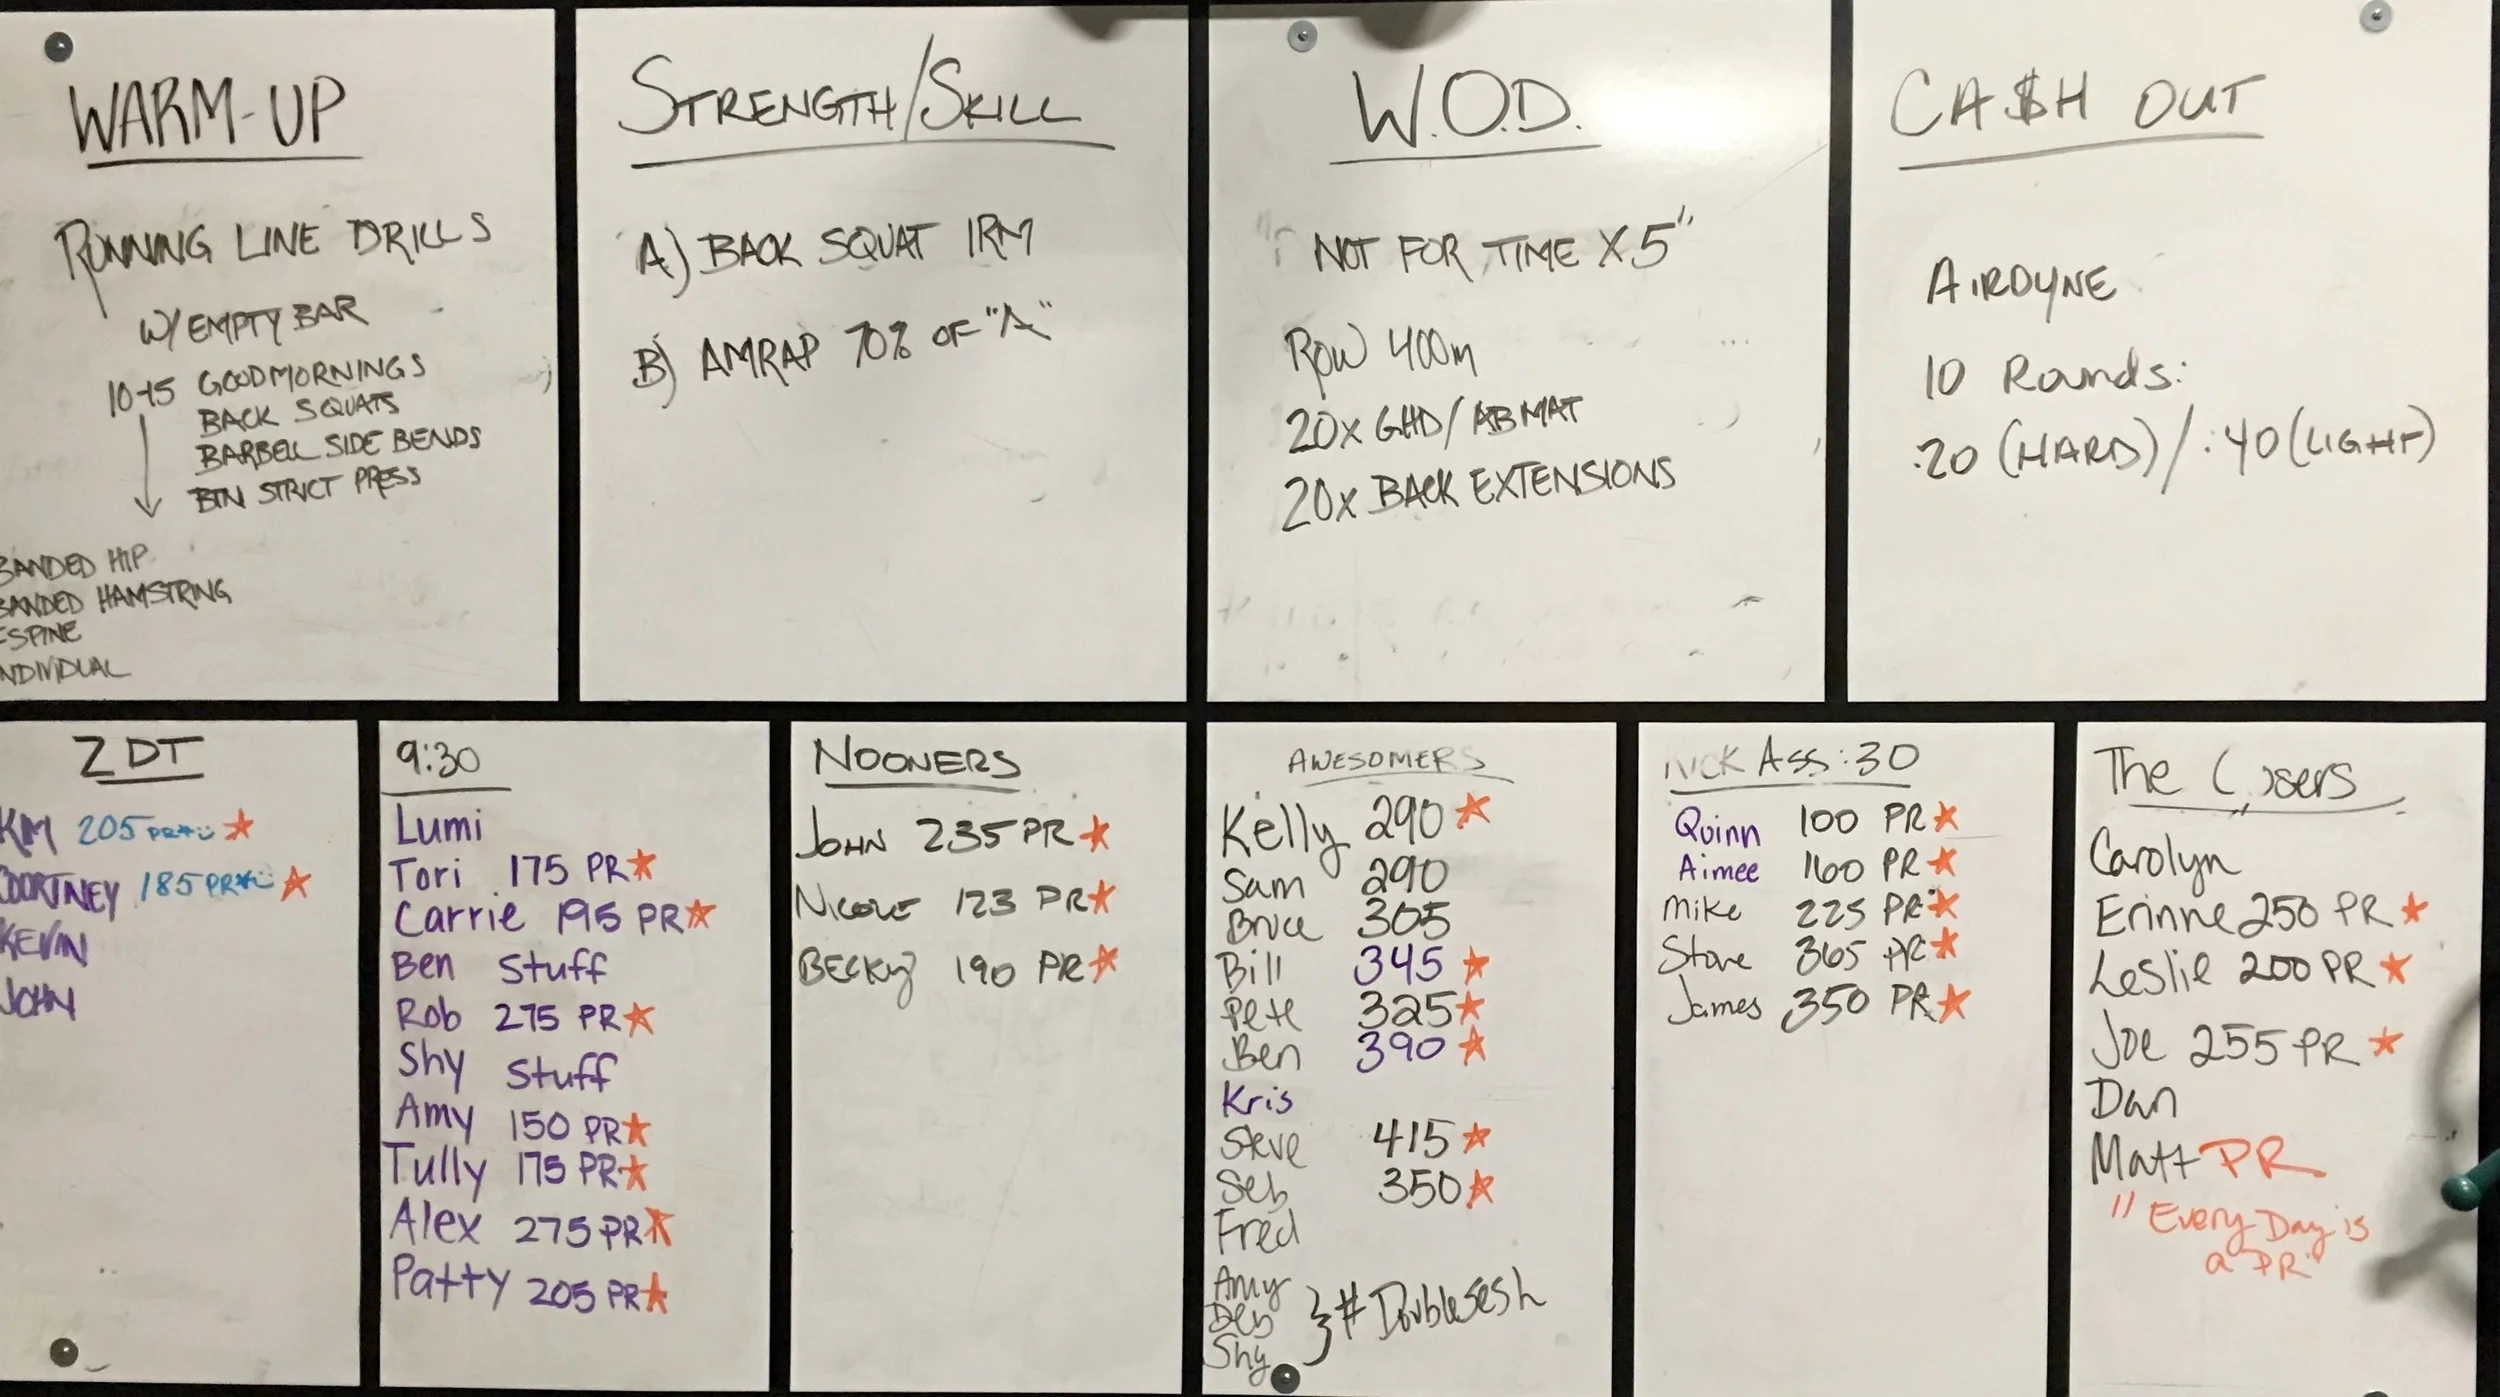 WARM-UP
RUNNING LINE DRILLS
W/ EMPTY BAR
10-15 GOODMORNINGS
BACK SQUATS
BARBELL SIDE BENDS
BTN STRICT PRESS
BANDED HIP
BANDED HAMSTRING
SPINE
INDIVIDUAL
STRENGTH/SKILL
A) BACK SQUAT 1RM
B) AMRAP 70% OF "A"
W.O.D.
"NOT FOR TIME X 5"
ROW 400m
20x GHD/ABMAT
20x BACK EXTENSIONS
CA$H OUT
AIRDYNE
10 Rounds:
:20 (HARD)/:40 (LIGHT)
ZDT
KIM 205 PR
COURTNEY 185 PR
KEVIN
JOHN
9:30
Lumi
Tori 175 PR
Carrie 195 PR
Ben Stuff
Rob 275 PR
Shy Stuff
Amy 150 PR
Tully 175 PR
Alex 275 PR
Patty 205 PR
NOONERS
JOHN 235 PR
NICOLE 123 PR
BECKY 190 PR
AWESOMERS
Kelly 290
Sam 290
Bruce 305
Bill 345
Pete 325
Ben 390
Kris
Steve 415
Seb 350
Fred
Amy
Deb
Shy
} #Doublesesh
Ass:30
Quinn 100 PR
Aimee 160 PR
Mike 225 PR
Steve 365 PR
James 350 PR
The
Carolyn
Erinne 250 PR
Leslie 200 PR
Joe 255 PR
Dan
Matt PR
"Every Day is
a PR"